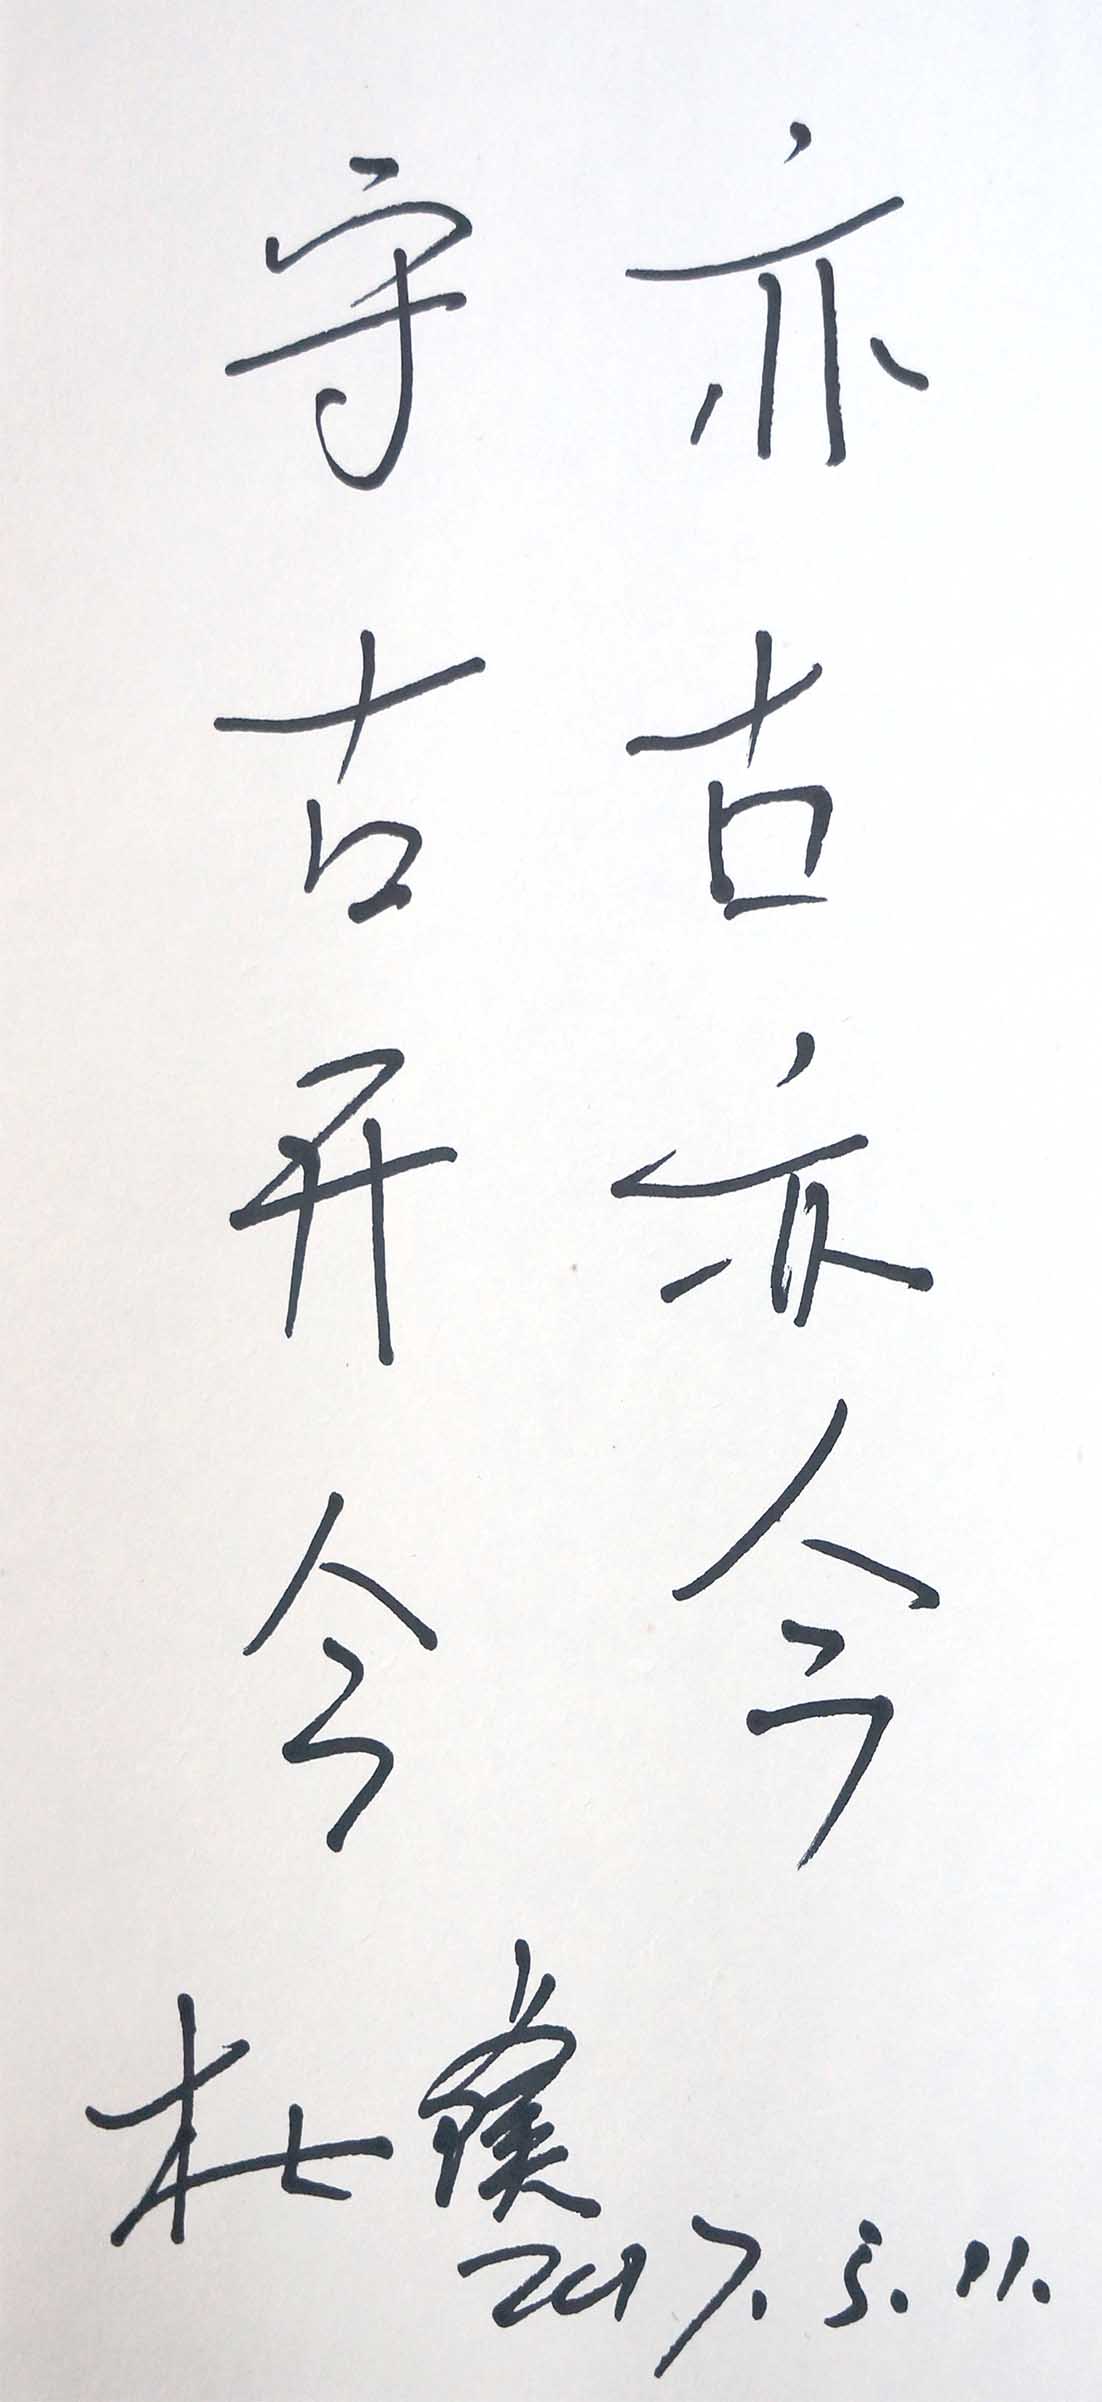 亦古亦今
守古开今
杜
2017.5.11.